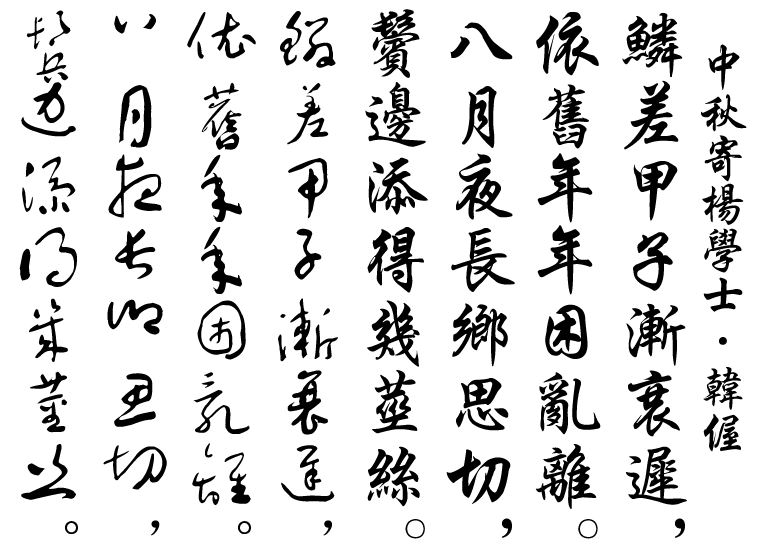 中秋寄楊學士・韓偓
鱗差甲子漸衰遲，
依舊年年困亂離。
八月夜長鄉思切，
鬢邊添得幾莖絲。
鱗差甲子漸衰遲，
依舊年年困亂離。
八月夜長鄉思切，
鬢邊添得幾莖絲。